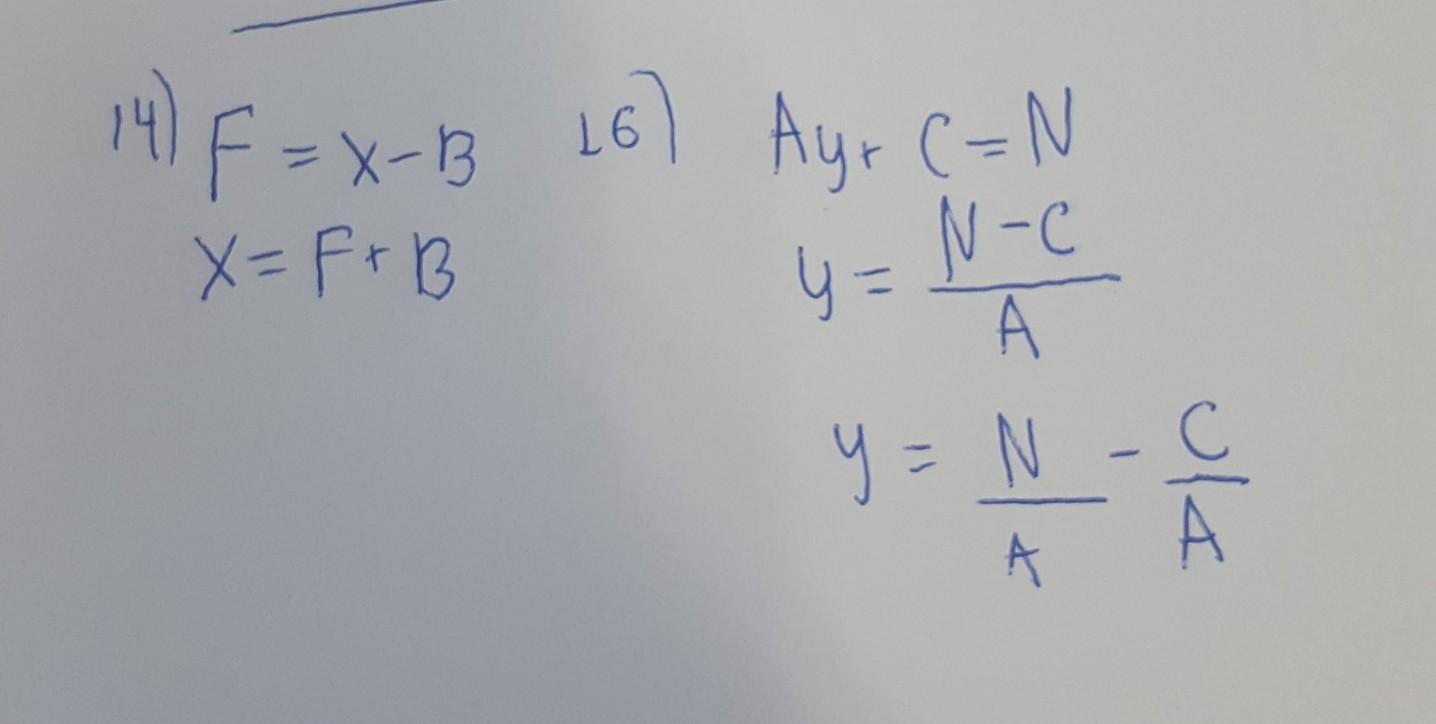 14) F = x - B
x = F + B
16) Ay + C = N
y = N - C / A
y = N / A - C / A